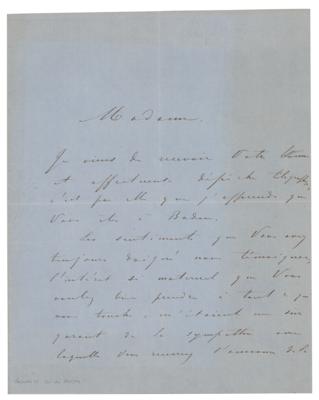 Madame.
Je viens de recevoir Votre bonne
et affectueuse dépêche télégraph
c'est par Elle que j'apprends que
Vous êtes à Baden.
Les sentiments que Vous avez
toujours daigné nous témoigner,
l'intérêt si maternel que Vous
voulez bien prendre à tout ce qui
nous touche, m'étaient un sûr
garant de la sympathie avec
laquelle Vous recevrez l'annonce de la